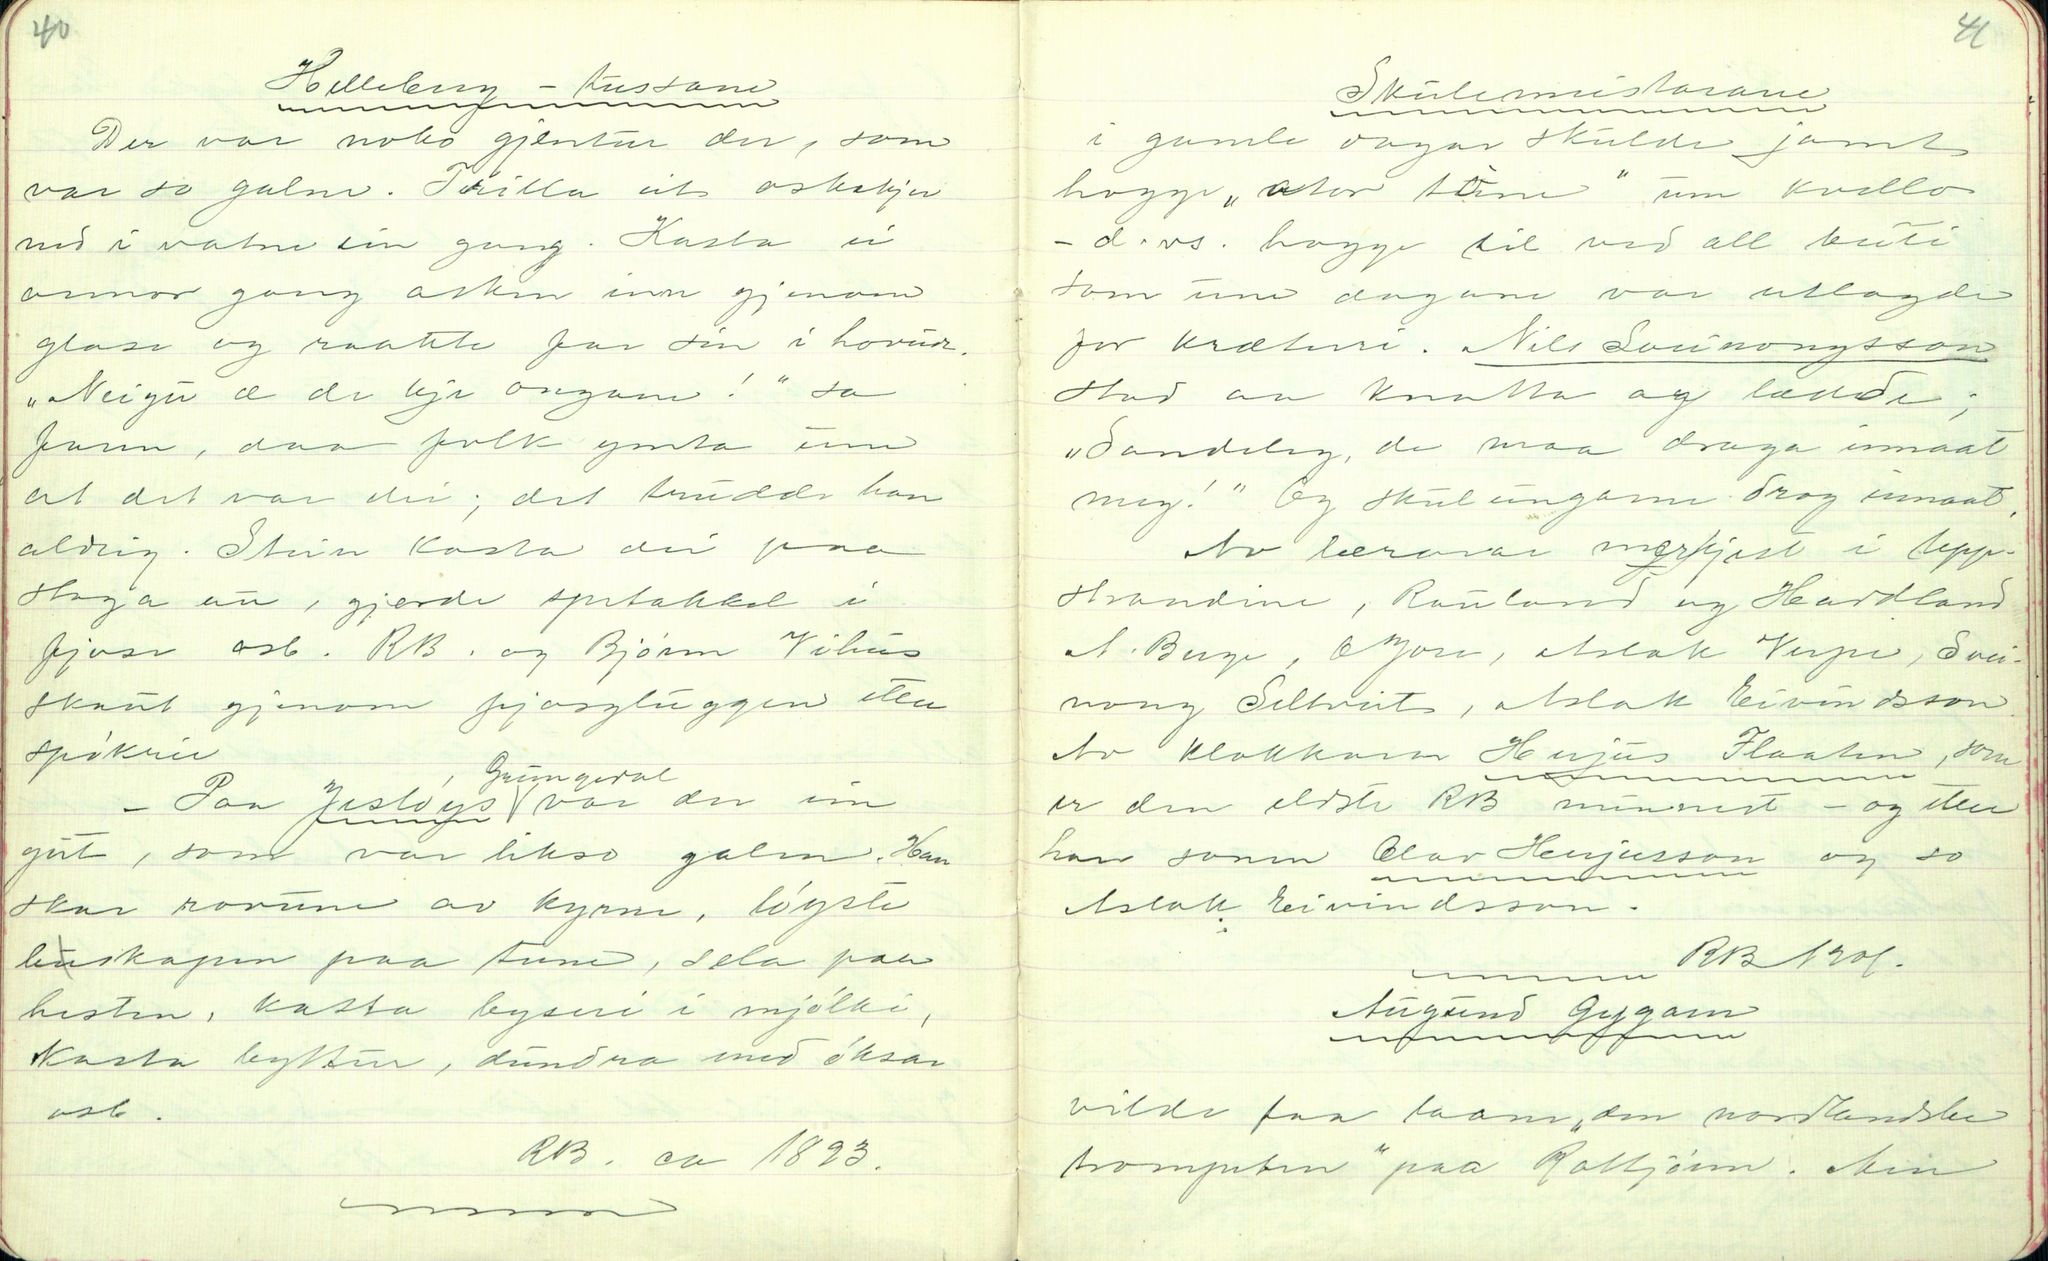 40
Helleberg-tussane
Der var noko gjentur der, som
var so galne. Trilla eit oskekjer
ned i vatne ein gong. Kasta ei
annor gong asken inn gjenom
glase og raakte far sin i hovud.
"Neigu æ de kje ongane!" sa
faren, daa folk ymta um
at det var dei; det trudde han
aldrig. Stein kasta dei paa
stoga au, gjerde spetakkel i
fjose osb. RB. og Bjørn Vihus
skaut gjenom fjosgluggen etter
spøkrie
Grungedal
- Paa Jesløys var der ein
gut, som var likso galen. Han
skar rovune av kyrne, løyste
buskapen paa tune, sela paa
hesten, kasta byseri i mjølki,
Kasta byttur, dundra med øksar
osb.
RB. ca 1893.
41
Skulemeistarane
i gamle dagar skulde jamt
hogge "ator tune" um kvello
- d. vs. hogge til ved all kuti
som une dagane var utlagde
for kræturi. Nils Sveinongsson
stod aa knatta og lædde;
"Sandeleg, de maa draga imaat
meg!" Og skuleungarne drog imaat.
Av lerarar merkjest i Upp-
strandine, Rauland og Hardland
A. Berge, O Gjøre, Aslak Verpe, Svei-
nong Seltveit, Aslak Eivindsson.
Av klokkarar Herjus Flaaten, som
er den eldste RB minnest - og etter
han sonen Olav Herjusson og so
Aslak Eivindsson.
RB 1901.
Augund Gygarn
vilde faa laane "den nordlandske
trompeten" paa Rotkjønn. Min